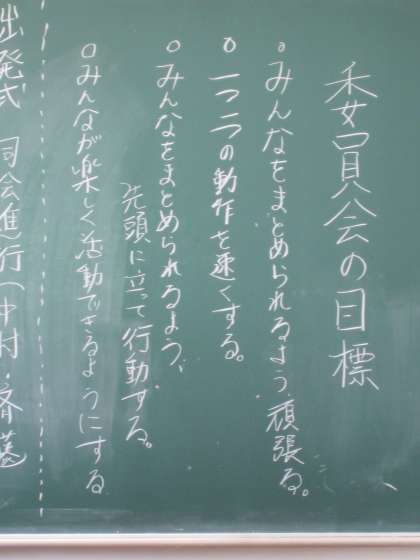 委員会の目標
○みんなをまとめられるよう頑張る。
○一つ一つの動作を速くする。
○みんなをまとめられるよう、
先頭に立って行動する。
○みんなが楽しく活動できるようにする
出発式 司会進行(中村・斉藤